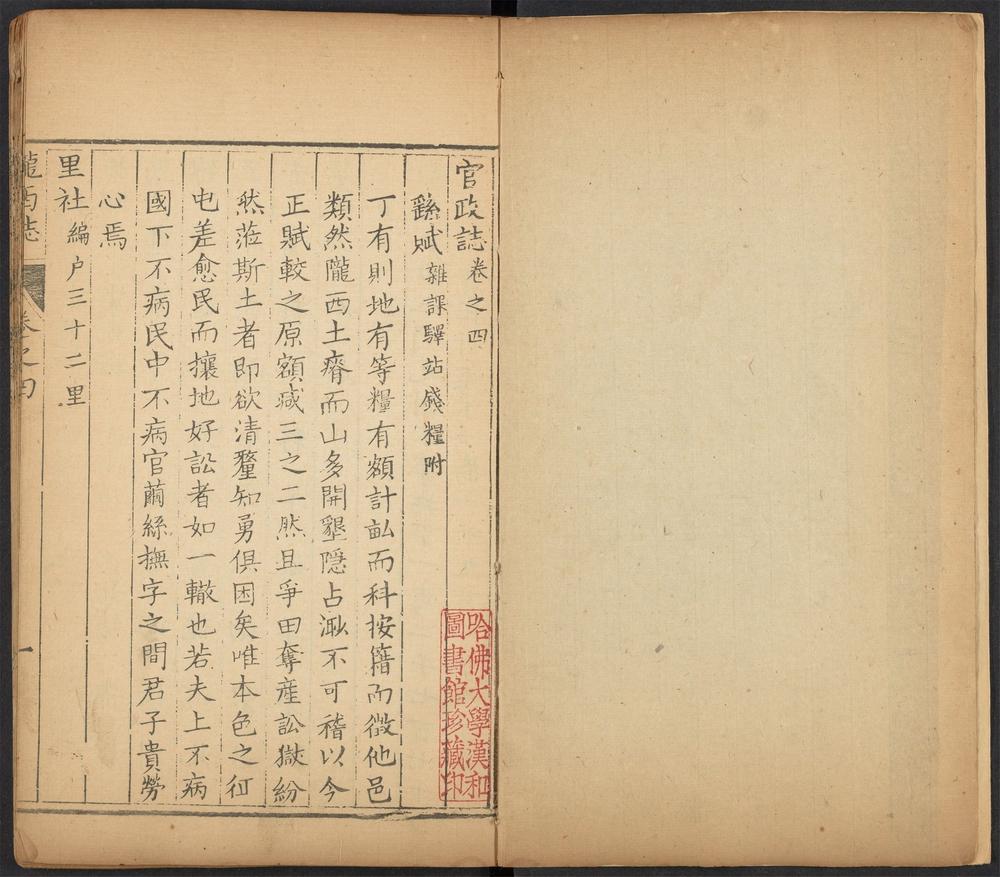 官政誌卷之四
繇賦雜課驛站錢糧附
丁有則地有等糧有額計畝而科按籍而徵他邑
類然隴西土瘠而山多開墾隱占渺不可稽以今
正賦較之原額減三之二然且爭田奪產訟獄紛
然蒞斯土者即欲清釐知勇俱困矣唯本色之征
屯差愈民而攘地好訟者如一轍也若夫上不病
國下不病民中不病官繭絲撫字之間君子貴勞
心焉
里社編户三十二里
隴西誌 卷之四 一
哈佛大學漢和
圖書館珍藏印